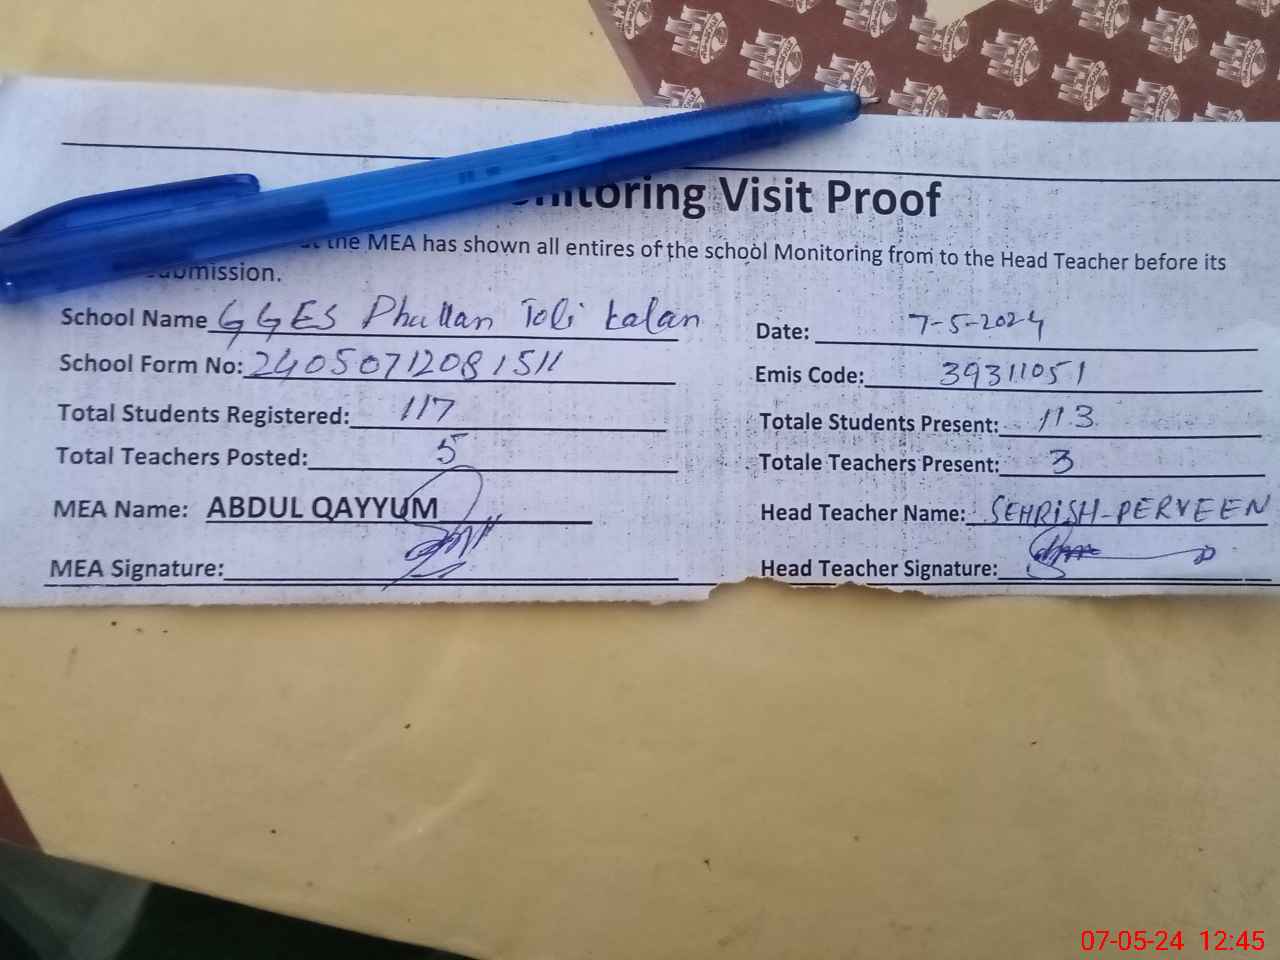 Monitoring Visit Proof
the MEA has shown all entires of the school Monitoring from to the Head Teacher before its
submission.
School Name GGES Phullan Toli kalan
Date: 7-5-2024
School Form No: 24050712081511
Emis Code: 39311051
Total Students Registered: 117
Totale Students Present: 113
Total Teachers Posted: 5
Totale Teachers Present: 3
MEA Name: ABDUL QAYYUM
Head Teacher Name: SEHRISH-PERVEEN
MEA Signature:
Head Teacher Signature:
07-05-24 12:45